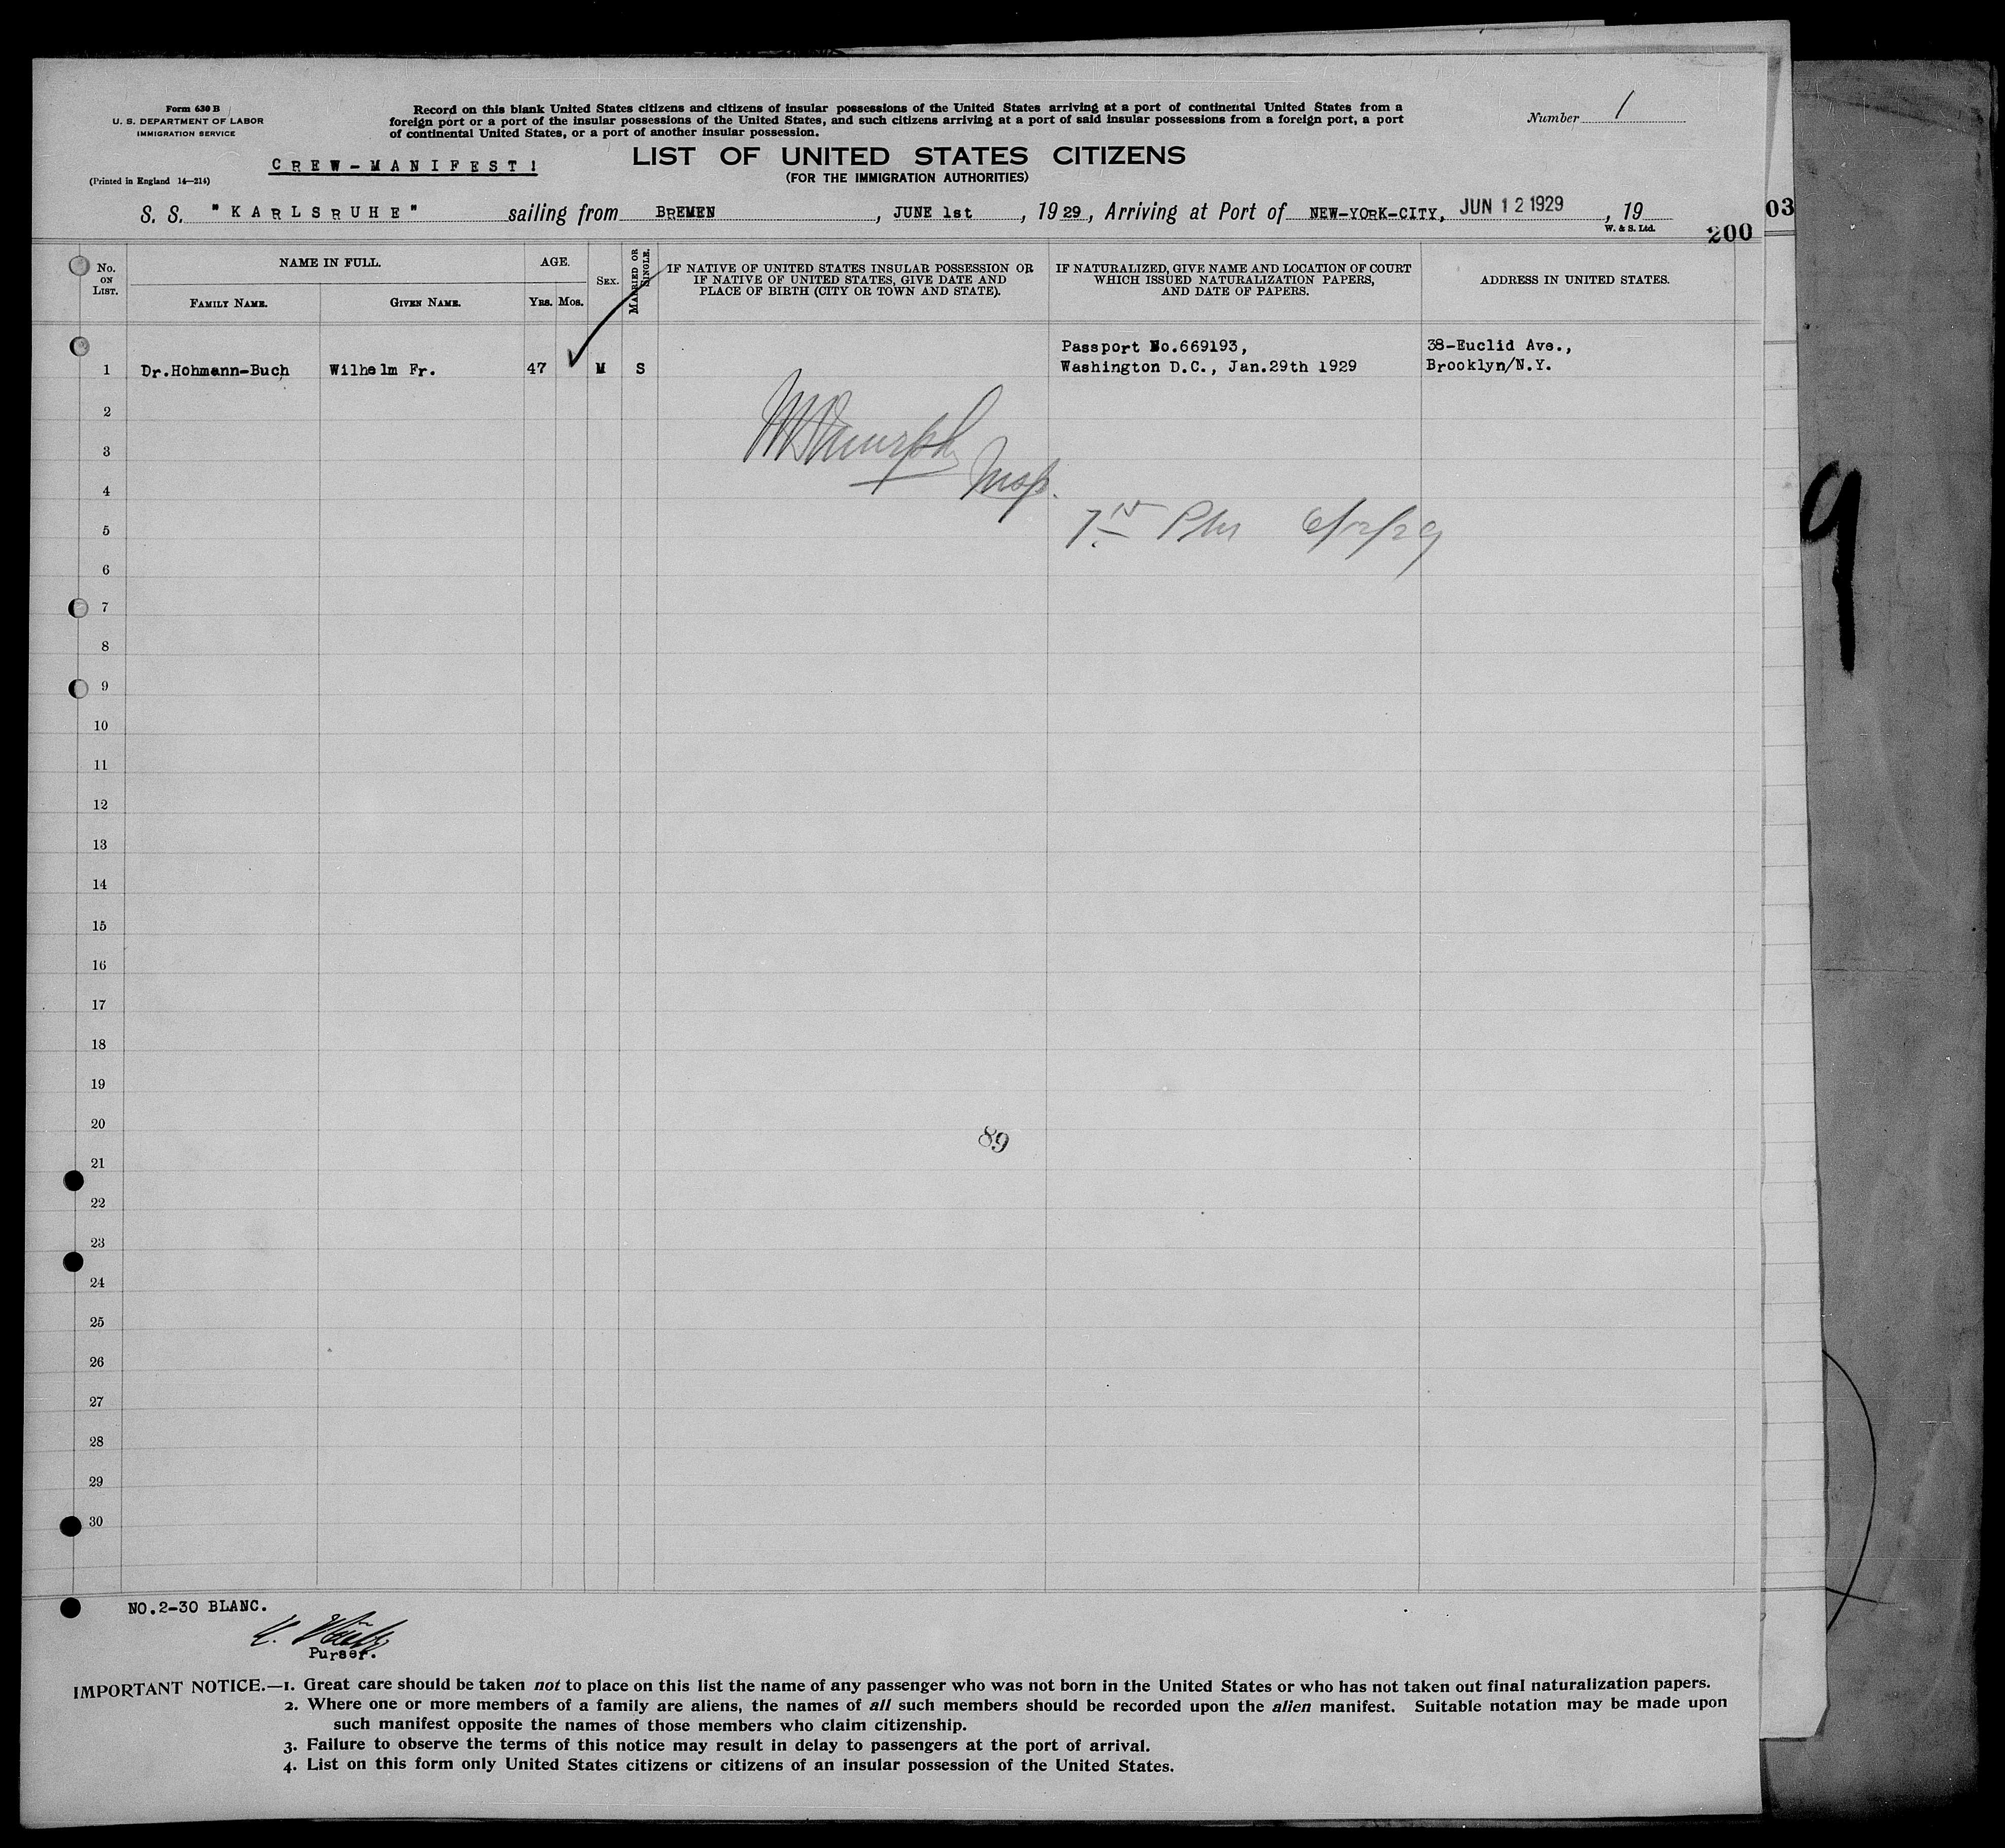 Form 630 B
U. S. DEPARTMENT OF LABOR
IMMIGRATION SERVICE
Record on this blank United States citizens and citizens of insular possessions of the United States arriving at a port of continental United States from a
foreign port or a port of the insular possessions of the United States, and such citizens arriving at a port of said insular possessions from a foreign port, a port
of continental United States, or a port of another insular possession.
Number 1
CREW-MANIFEST!
LIST OF UNITED STATES CITIZENS
(Printed in England 14—214)
(FOR THE IMMIGRATION AUTHORITIES)
S. S. "KARLSRUHE" sailing from BREMEN, JUNE 1st, 1929, Arriving at Port of NEW-YORK-CITY, JUN 12 1929, 19
W. & S. Ltd.
03
200
No. ON LIST.
NAME IN FULL.
FAMILY NAME.
GIVEN NAME.
AGE.
Yrs. Mos.
SEX.
MARRIED OR SINGLE.
IF NATIVE OF UNITED STATES INSULAR POSSESSION OR
IF NATIVE OF UNITED STATES, GIVE DATE AND
PLACE OF BIRTH (CITY OR TOWN AND STATE).
IF NATURALIZED, GIVE NAME AND LOCATION OF COURT
WHICH ISSUED NATURALIZATION PAPERS,
AND DATE OF PAPERS.
ADDRESS IN UNITED STATES.
Passport No.669193, 38-Euclid Ave.,
1 Dr.Hohmann-Buch Wilhelm Fr. 47 M S Washington D.C., Jan.29th 1929 Brooklyn/N.Y.
2
3
4
Insp.
5
6/12/29
9
6
7
8
9
10
11
12
13
14
15
16
17
18
19
20
89
21
22
23
24
25
26
27
28
29
30
NO.2-30 BLANC.
Purser.
IMPORTANT NOTICE.—1. Great care should be taken not to place on this list the name of any passenger who was not born in the United States or who has not taken out final naturalization papers.
2. Where one or more members of a family are aliens, the names of all such members should be recorded upon the alien manifest. Suitable notation may be made upon
such manifest opposite the names of those members who claim citizenship.
3. Failure to observe the terms of this notice may result in delay to passengers at the port of arrival.
4. List on this form only United States citizens or citizens of an insular possession of the United States.